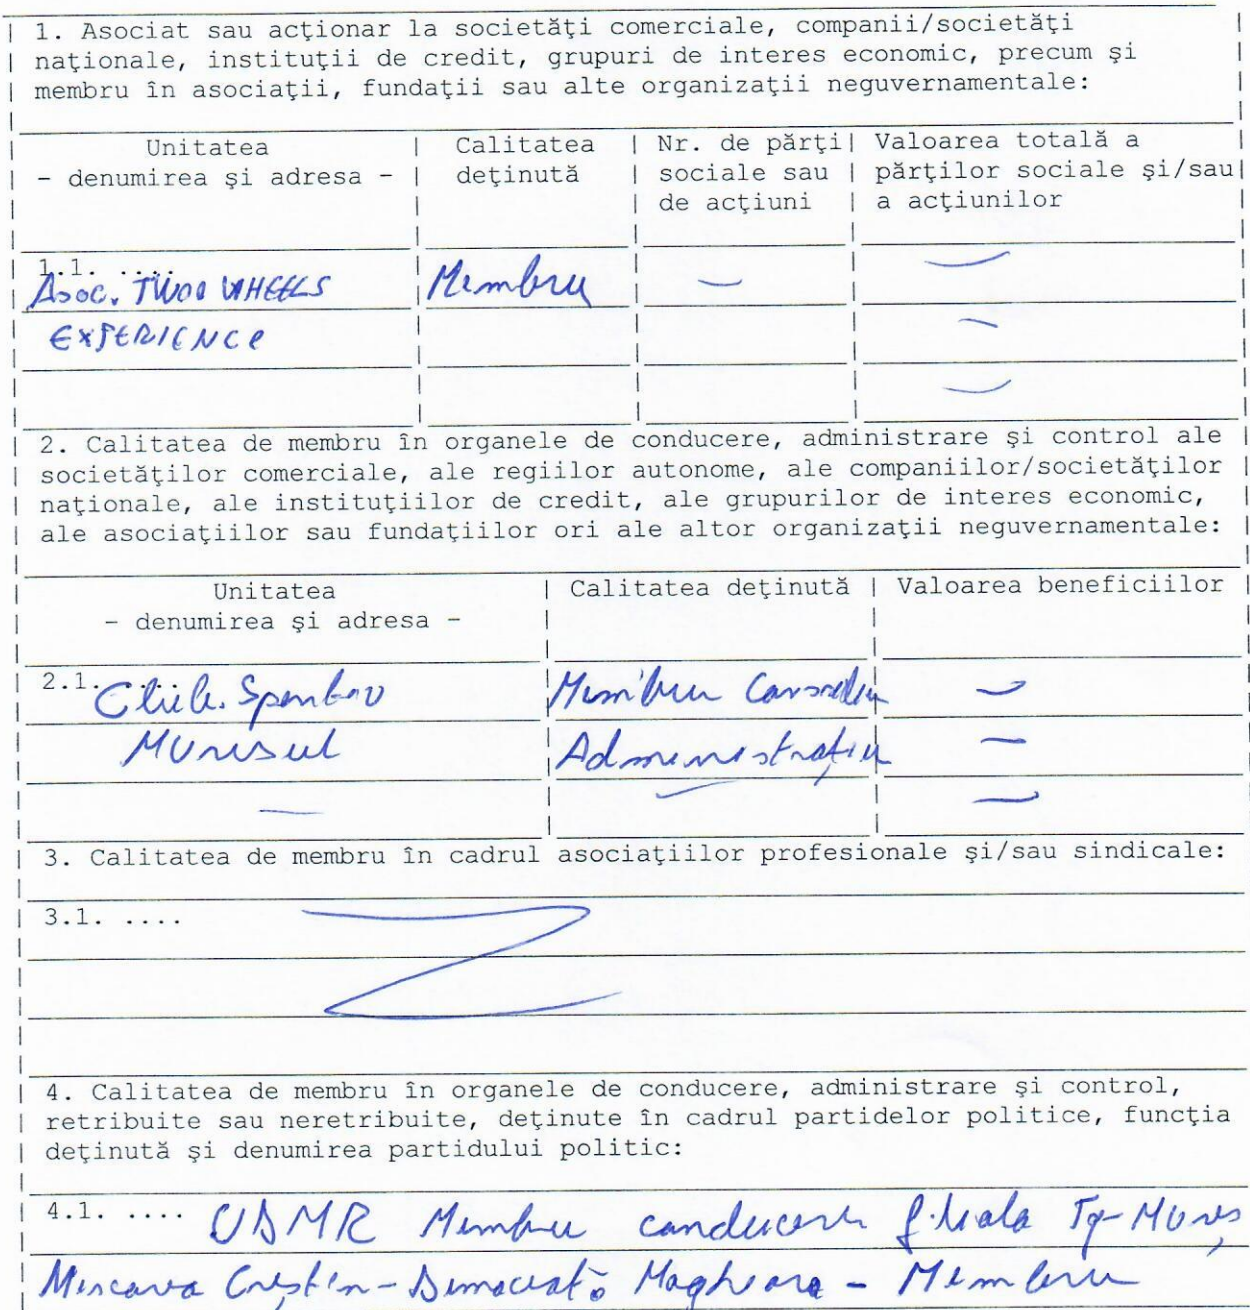 1. Asociat sau acţionar la societăţi comerciale, companii/societăţi
naţionale, instituţii de credit, grupuri de interes economic, precum şi
membru în asociaţii, fundaţii sau alte organizaţii neguvernamentale:
Unitatea | Calitatea | Nr. de părţi | Valoarea totală a
- denumirea şi adresa - | deţinută | sociale sau | părţilor sociale şi/sau
de acţiuni | a acţiunilor
1.1. ....
Asoc. TWOO WHEELS Membru – –
EXPERIENCE –
–
2. Calitatea de membru în organele de conducere, administrare şi control ale
societăţilor comerciale, ale regiilor autonome, ale companiilor/societăţilor
naţionale, ale instituţiilor de credit, ale grupurilor de interes economic,
ale asociaţiilor sau fundaţiilor ori ale altor organizaţii neguvernamentale:
Unitatea | Calitatea deţinută | Valoarea beneficiilor
- denumirea şi adresa -
2.1. .... Club. Sportiv Membru Consiliu –
Muresul Administraţiu –
– – –
3. Calitatea de membru în cadrul asociaţiilor profesionale şi/sau sindicale:
3.1. ....
4. Calitatea de membru în organele de conducere, administrare şi control,
retribuite sau neretribuite, deţinute în cadrul partidelor politice, funcţia
deţinută şi denumirea partidului politic:
4.1. .... UDMR Membru conducere filiala Tg-Mureş
Miscarea Creştin-Democrată Maghiara - Membru